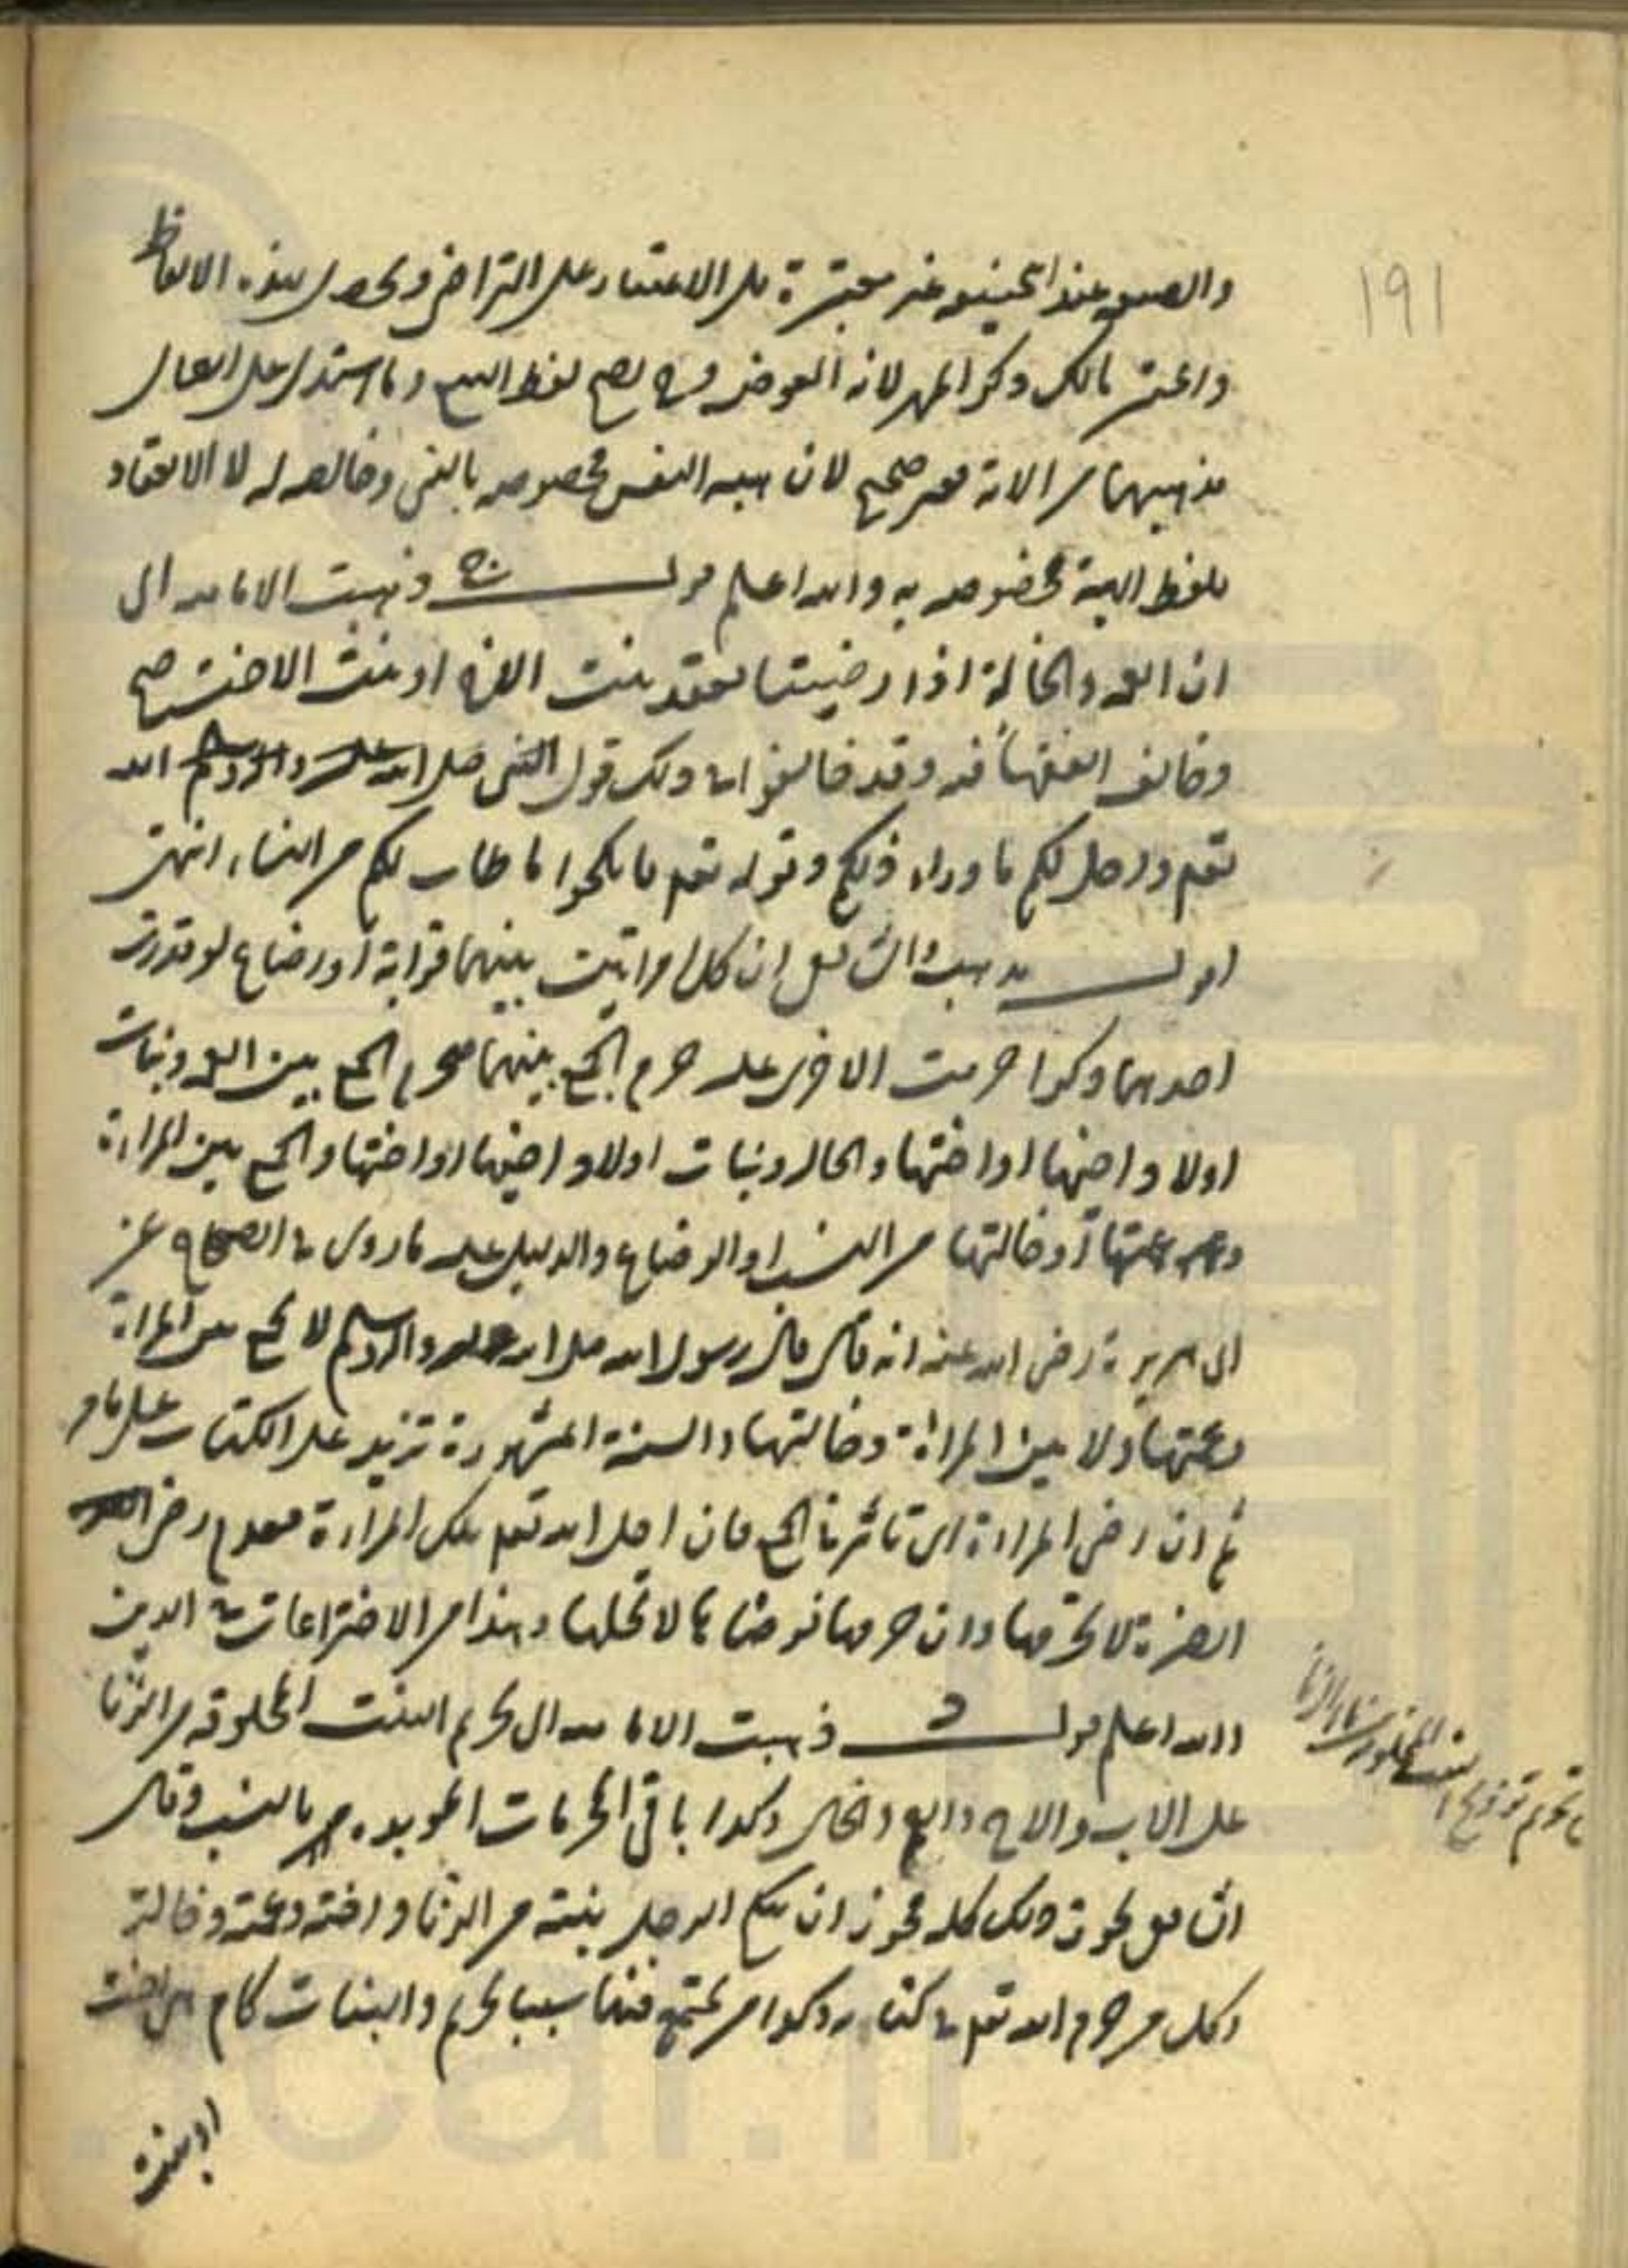 ١٩١
والصيغة عند ابي حنيفة غير معتبرة بل الاعتبار على التراضي ويحصل بهذه الالفاظ
واعتبر مالك ذكر المهر لانه العوض وح يصح لفظ البيع وما استدل على ابطال
مذهبهما من الآية فغير صحيح لان هبة النفس مخصوصة بالنبي وخالصة له لا الانعقاد
بلفظ الهبة مخصوصة به والله اعلم قوله ذهبت الامامية الى
ان العمة والخالة اذا رضيتا بعقد بنت الاخ او بنت الاخت صح
وخالف الفقهاء فيه وقد خالفوا في ذلك قول الله
تعم واحل لكم ما وراء ذلكم وقوله تعم فانكحوا ما طاب لكم من النساء انتهى
اقول مذهب الشافعي ان كل امراتين بينهما قرابة او رضاع لو قدرت
احديهما ذكرا حرمت الاخرى عليه حرم الجمع بينهما فيحرم الجمع بين العمة وبنات
اولاد اخيها او اختها والخالة وبنات اولاد اخيها او اختها والجمع بين المراة
وعمتها او خالتها من النسب او الرضاع والدليل عليه ما روي في الصحاح عن
ابي هريرة رضي الله عنه انه قال قال رسول الله صلى الله عليه وآله وسلم لا يجمع بين المراة
وعمتها ولا بين المراة وخالتها والسنة المشهورة تزيد على الكتاب على ما مر
ثم ان رضى المراة اي تاثير في الجمع فان احل الله تعم تلك المراة فعدم رضى
الضرة لا يحرمها وان حرمها فرضاها لا تحلها وهذا من الاختراعات في الدين
والله اعلم قوله ذهبت الامامية الى تحريم البنت المخلوقة من الزنا
على الاب والاخ والعم والخال وكذا باقي المحرمات المؤبدة من بالنسب وقال
الشافعي يجوز ذلك كله فيجوز ان ينكح الرجل بنته من الزنا واخته وعمته وخالته
وكل من حرم الله تعم في كتابه وكذا من يجتمع فيها سببا تحريم والبنات كام هي اخت
او بنته
تحريم تزويج البنت المخلوقة من ماء الزنا